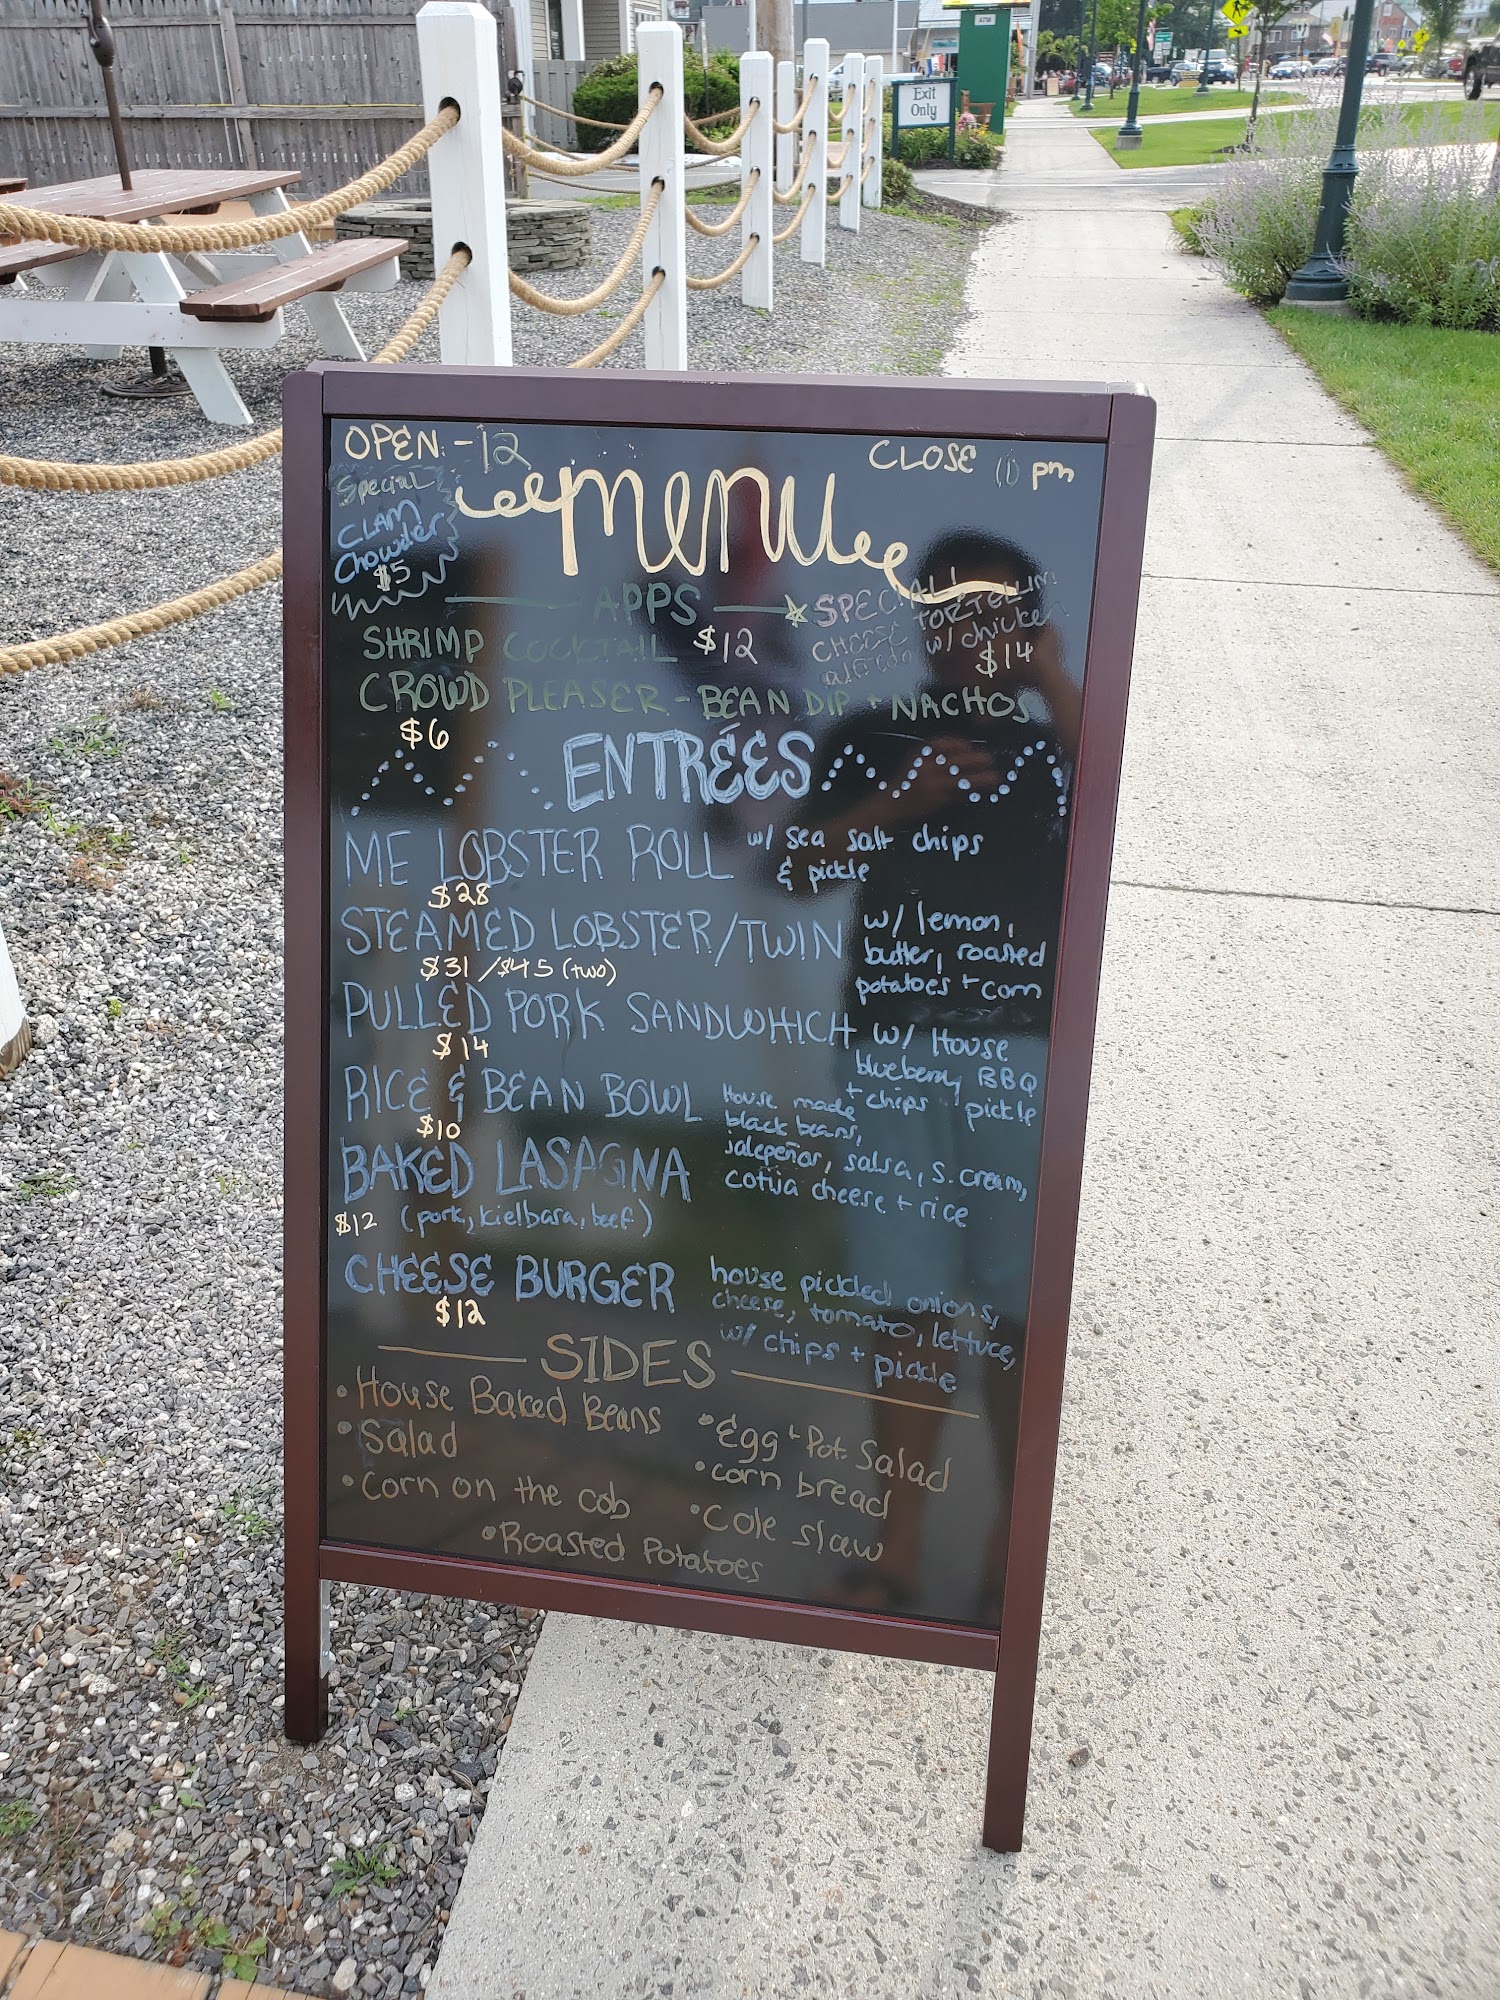 ATM
Exit
Only
OPEN - 12
CLOSE 10 pm
Special
CLAM
Chowder
$5
menu
APPS
SPECIAL!
CHEESE TORTELLINI
alfredo w/ chicken
$14
SHRIMP COCKTAIL $12
CROWD PLEASER - BEAN DIP + NACHOS
$6
ENTRÉES
ME LOBSTER ROLL w/ sea salt chips
& pickle
$28
STEAMED LOBSTER/TWIN w/ lemon,
butter, roasted
potatoes + corn
$31/$45 (two)
PULLED PORK SANDWHICH w/ House
blueberry BBQ
+ chips pickle
$14
RICE & BEAN BOWL House made
black beans,
jalepeños, salsa, s. cream,
cotija cheese + rice
$10
BAKED LASAGNA
$12 (pork, kielbasa, beef)
CHEESE BURGER house pickled onions,
cheese, tomato, lettuce,
w/ chips + pickle
$12
SIDES
• House Baked Beans
• Salad
• Corn on the cob
• Roasted Potatoes
• Egg + Pot. Salad
• corn bread
• Cole slaw